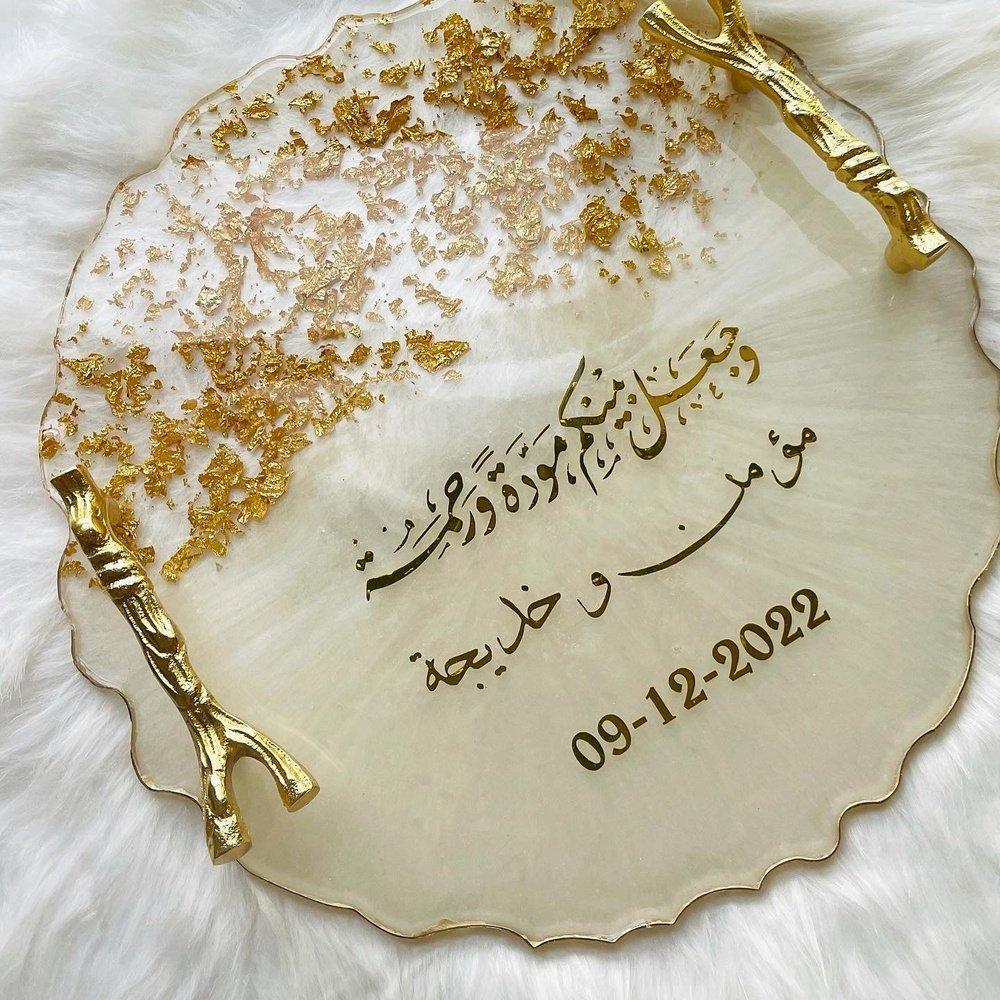 وَجَعَلَ بَيْنَكُم مَّوَدَّةً وَرَحْمَةً
مؤمن و خديجة
09-12-2022